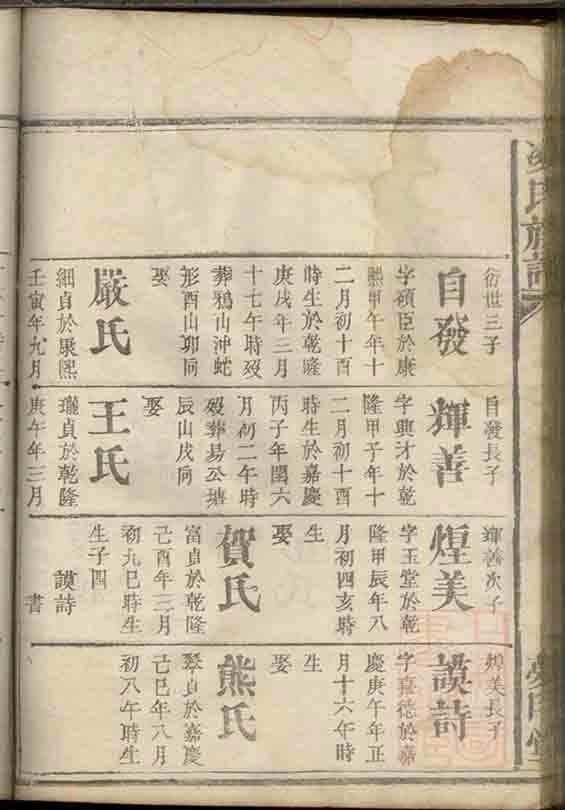 氏族譜
衍世三子
自發
字碩臣於康
熙甲午年十
二月初十酉
時生於乾隆
庚戌年三月
十七午時歿
葬鴉山沖蛇
形酉山卯向
娶
嚴氏
細貞於康熙
壬寅年九月
自發長子
輝善
字興才於乾
隆甲子年十
二月初十酉
時生於嘉慶
丙子年閏六
月初二午時
歿葬易公塘
辰山戌向
娶
王氏
貞於乾隆
庚午年三月
輝善次子
煌美
字玉堂於乾
隆甲辰年八
月初四亥時
生
娶
賀氏
富貞於乾隆
己酉年三月
初九巳時生
生子四
謨詩
書
煌美長子
謨詩
字嘉德於嘉
慶庚午年正
月十六午時
生
娶
熊氏
翠貞於嘉慶
己巳年八月
初八午時生